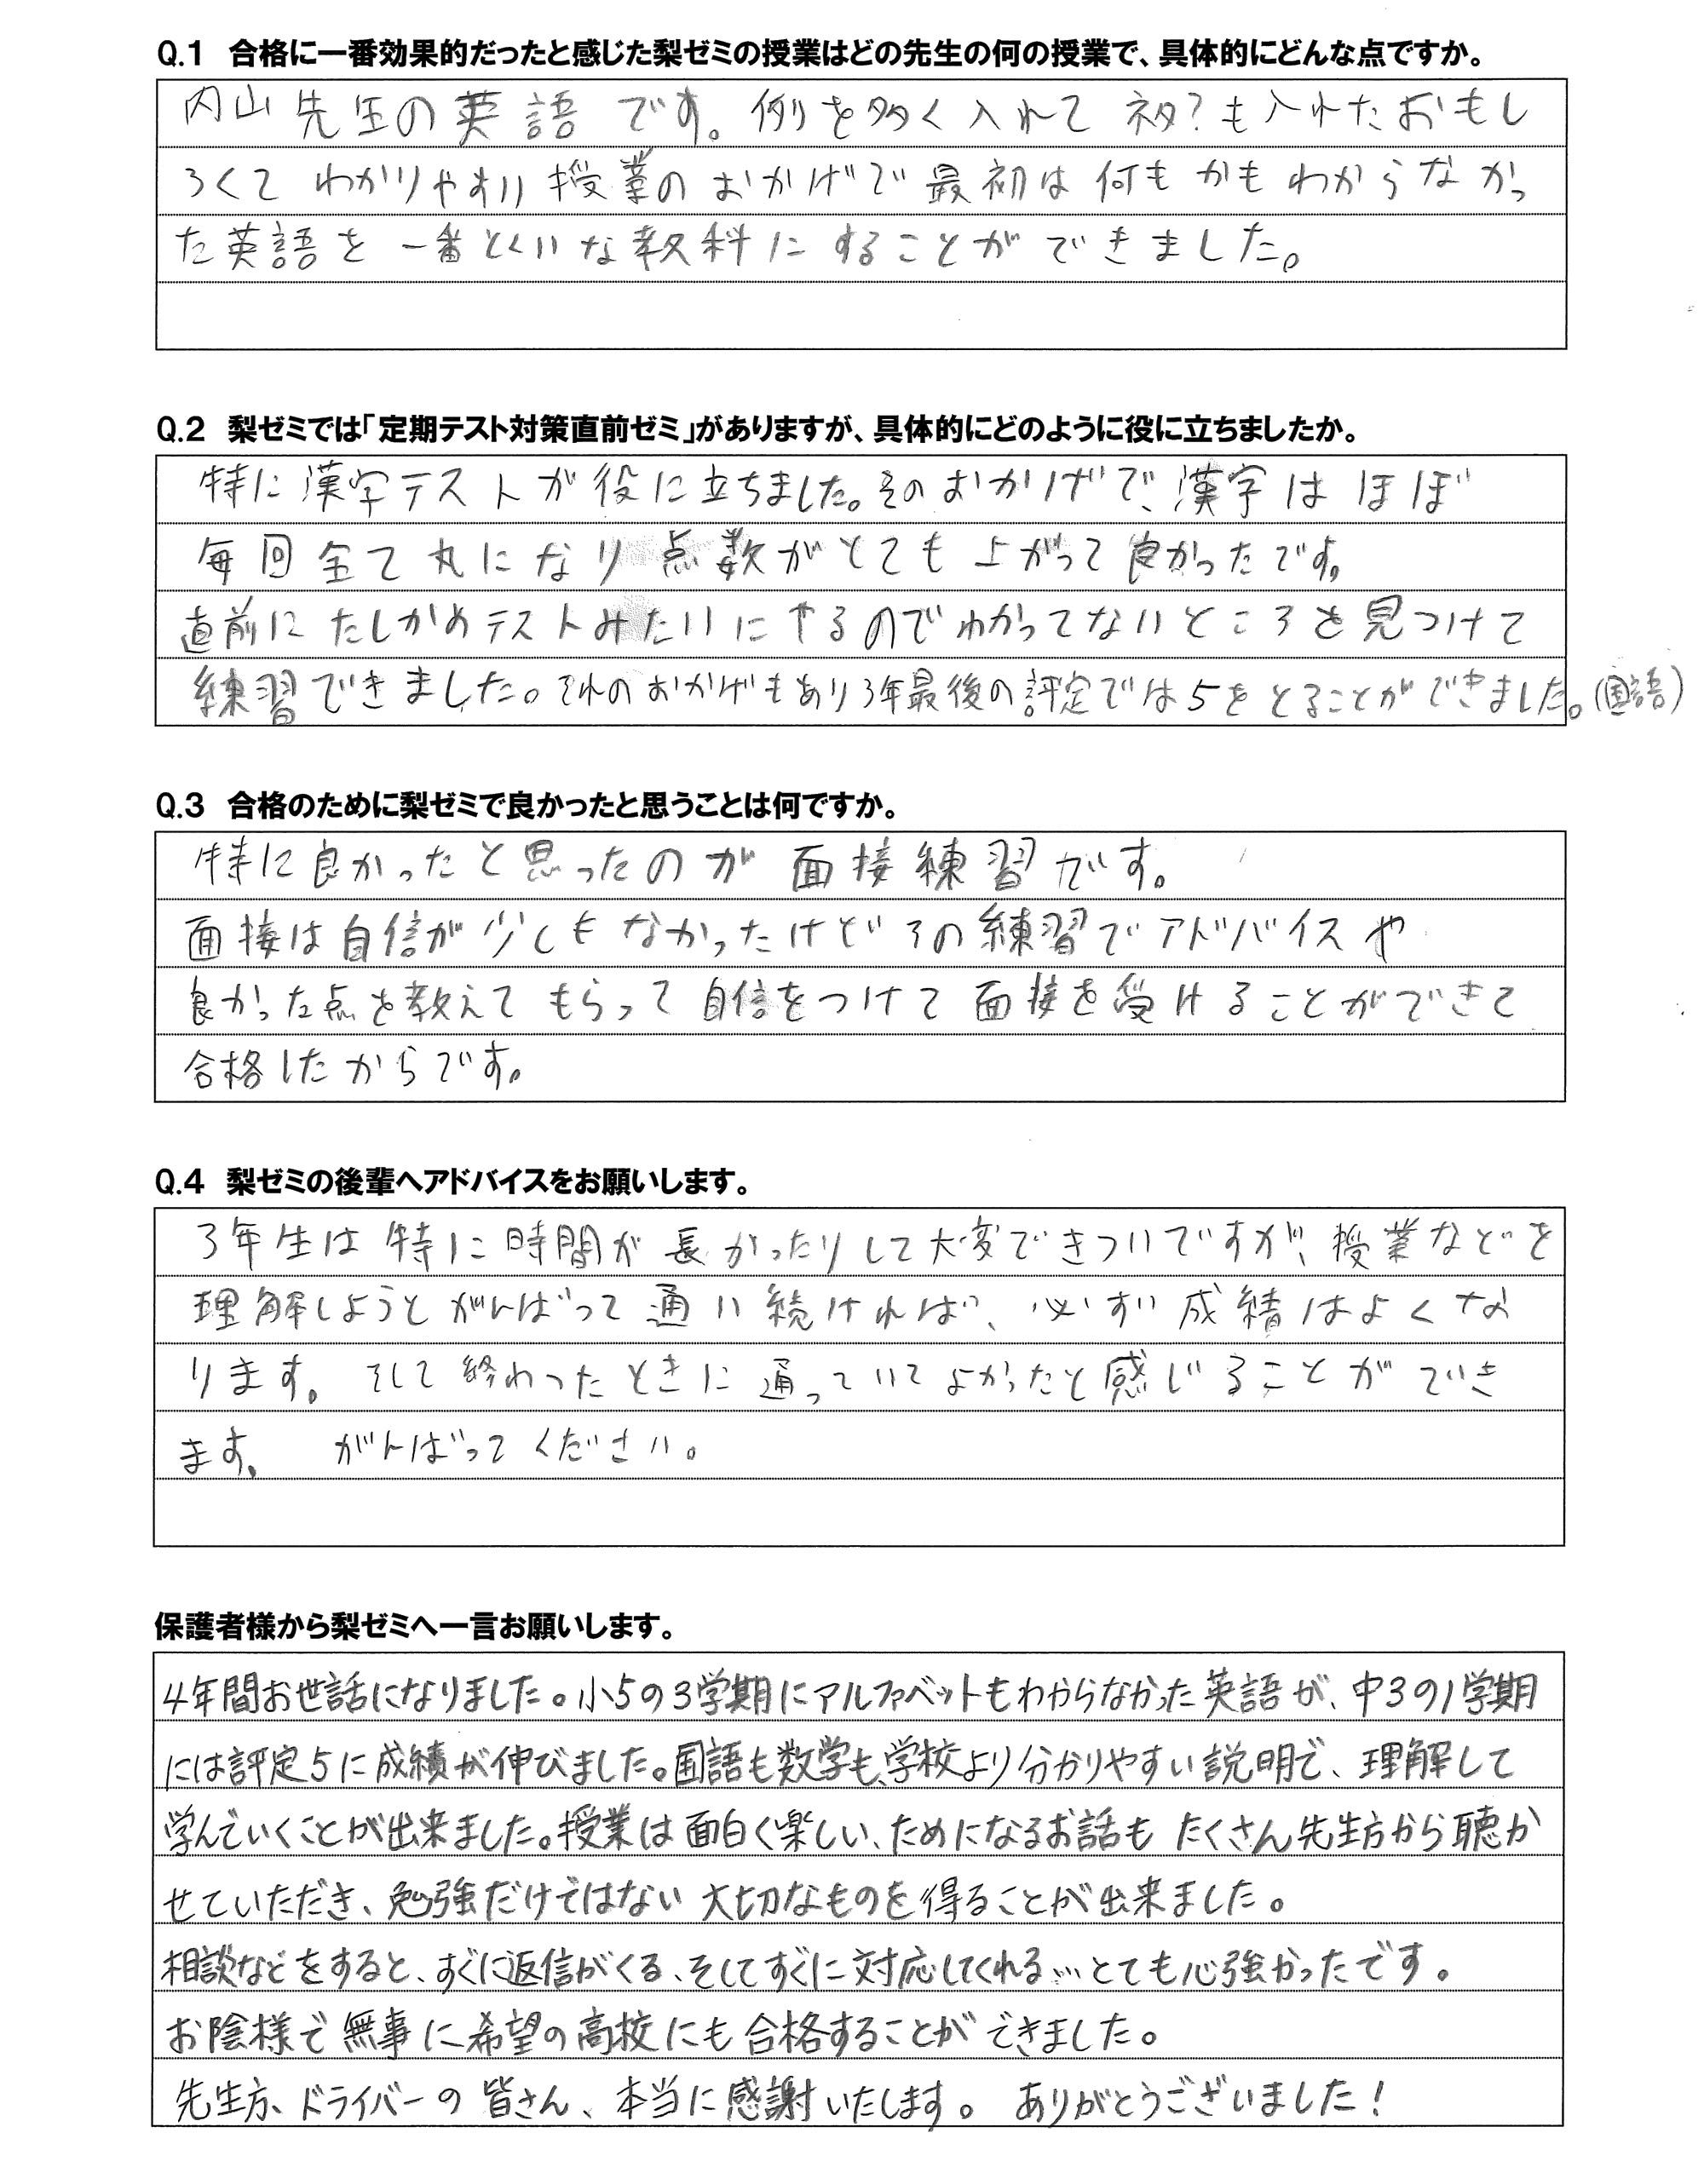 Q.1 合格に一番効果的だったと感じた梨ゼミの授業はどの先生の何の授業で、具体的にどんな点ですか。
内山先生の英語です。例を多く入れてネタ?も入れたおもし
ろくてわかりやすい授業のおかげで最初は何もかもわからなかっ
た英語を一番とくいな教科にすることができました。
Q.2 梨ゼミでは「定期テスト対策直前ゼミ」がありますが、具体的にどのように役に立ちましたか。
特に漢字テストが役に立ちました。そのおかげで、漢字はほぼ
毎回全て丸になり点数がとても上がって良かったです。
直前にたしかめテストみたいにやるのでわかってないところを見つけて
練習できました。それのおかげもあり3年最後の評定では5をとることができました。(国語)
Q.3 合格のために梨ゼミで良かったと思うことは何ですか。
特に良かったと思ったのが面接練習です。
面接は自信が少しもなかったけどその練習でアドバイスや
良かった点を教えてもらって自信をつけて面接を受けることができて
合格したからです。
Q.4 梨ゼミの後輩へアドバイスをお願いします。
3年生は特に時間が長かったりして大変できついですが、授業などを
理解しようとがんばって通い続ければ、必ず成績はよくな
ります。そして終わったときに通っていてよかったと感じることができ
ます。 がんばってください。
保護者様から梨ゼミへ一言お願いします。
4年間お世話になりました。小5の3学期にアルファベットもわからなかった英語が、中3の1学期
には評定5に成績が伸びました。国語も数学も、学校より分かりやすい説明で、理解して
学んでいくことが出来ました。授業は面白く楽しい、ためになるお話もたくさん先生方から聴か
せていただき、勉強だけではない大切なものを得ることが出来ました。
相談などをすると、すぐに返信がくる、そしてすぐに対応してくれる…とても心強かったです。
お陰様で無事に希望の高校にも合格することができました。
先生方、ドライバーの皆さん、本当に感謝いたします。ありがとうございました!